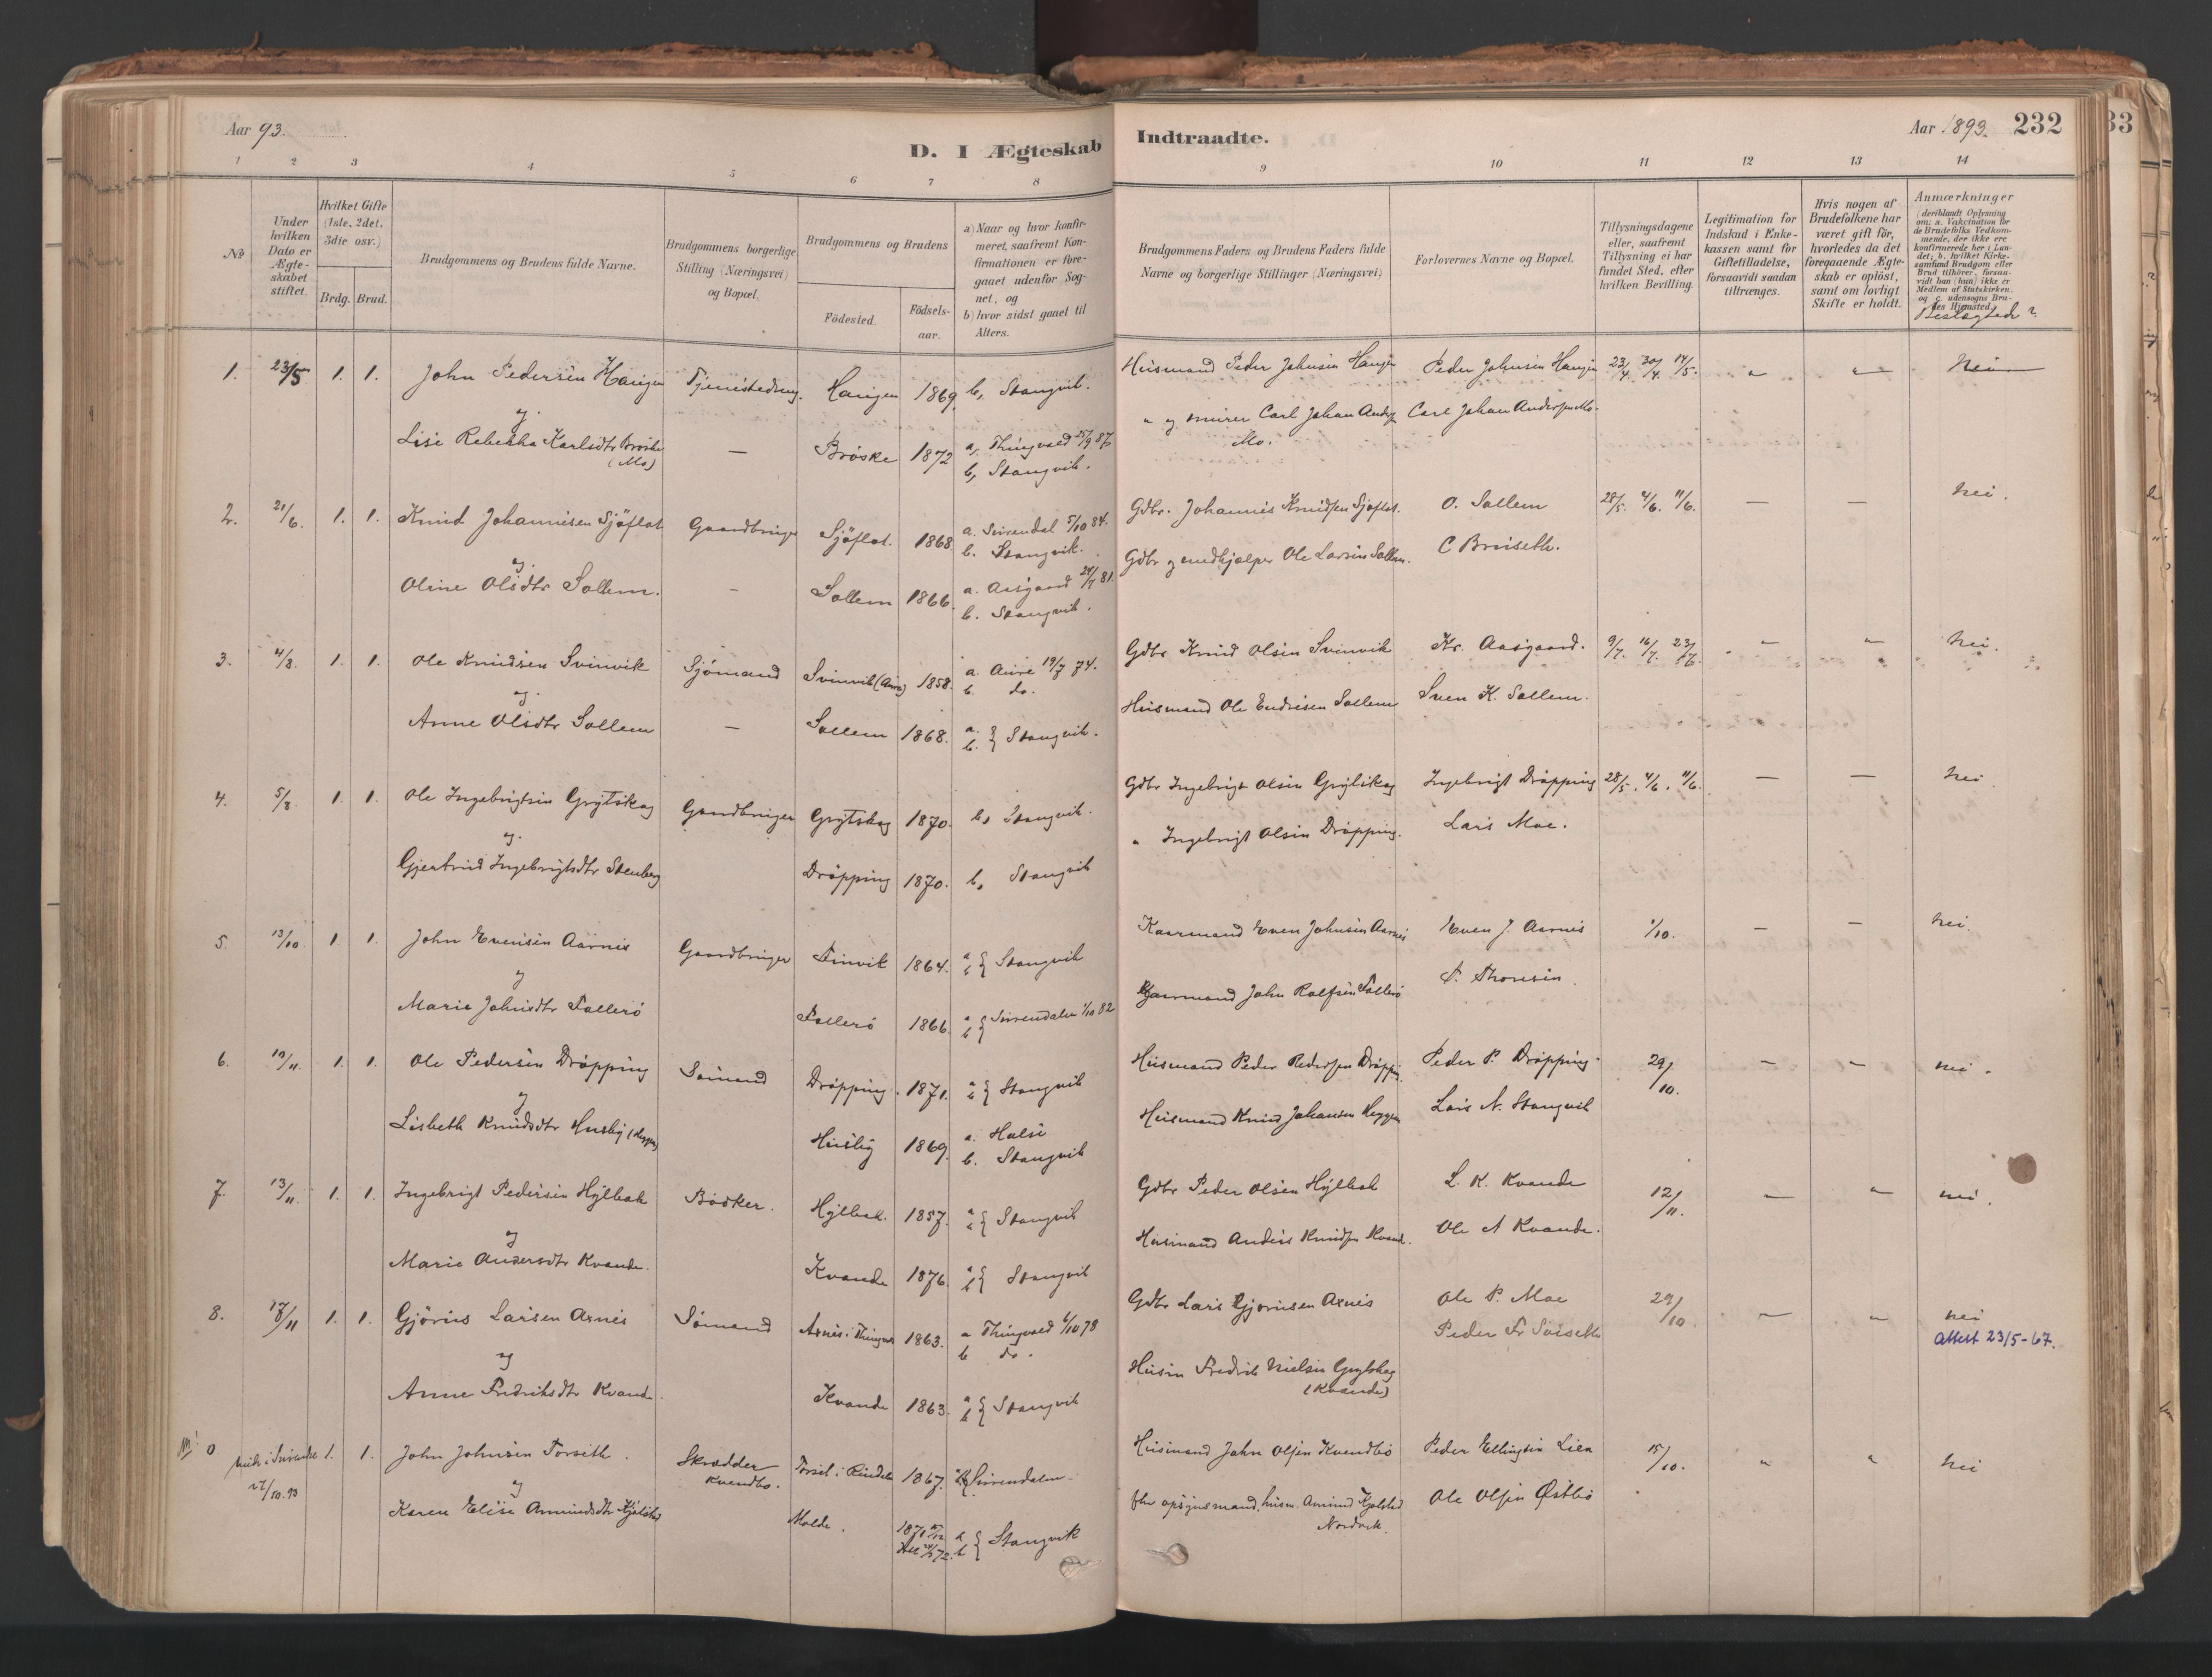 Aar 93.
D. I Ægteskab
Indtraadte.
Aar 1893. 232
33
1 2 3 4 5 6 7 8 9 10 11 12 13 14
No
Under
hvilken
Dato er
Ægte-
skabet
stiftet.
Hvilket Gifte
(1ste, 2det,
3die osv.)
Brdg. Brud.
Brudgommens og Brudens fulde Navne.
Brudgommens borgerlige
Stilling (Næringsvei)
og Bopæl.
Brudgommens og Brudens
Födested.
Födsels-
aar.
a) Naar og hvor konfir-
meret, saafremt Kon-
firmationen er fore-
gaaet udenfor Sog-
net, og
b) hvor sidst gaaet til
Alters.
Brudgommens Faders og Brudens Faders fulde
Navne og borgerlige Stillinger (Næringsvei)
Forlovernes Navne og Bopæl.
Tillysningsdagene
eller, saafremt
Tillysning ei har
fundet Sted, efter
hvilken Bevilling.
Legitimation for
Indskud i Enke-
kassen samt for
Giftetilladelse,
forsaavidt saadan
tiltrænges.
Hvis nogen af
Brudefolkene har
været gift för,
hvorledes da det
foregaaende Ægte-
skab er oplöst,
samt om lovligt
Skifte er holdt.
Anmærkninger
(deriblandt Oplysning
om: a. Vakcination for
de Brudefolks Vedkom-
mende, der ikke ere
konfirmerede her i Lan-
det; b. hvilket Kirke-
samfund Brudgom eller
Brud tilhörer, forsaa-
vidt han (hun) ikke er
Medlem af Statskirken,
og c. udensogns Bru-
des Hjemsted)
Beslægtede?
1. 23/5 1. 1. John Pedersen Haugen Tjenestedreng. Haugen 1869. b, Stangvik. Husmand Peder Johnsen Haugen Peder Johnsen Haugen 23/4. 30/4. 14/5. " " Nei
og
Lise Rebekka Karlsdtr Brøske (Mo) — Brøske 1872 a, Thingvold 25/9 87 b, Stangvik. " og murer Carl Johan Anders Mo. Carl Johan Andersen Mo.
2. 21/6. 1. 1. Knud Johannesen Sjøflot Gaardbruger Sjøflot. 1868 a. Surendal 5/10 84. b. Stangvik. Gdbr. Johannes Knudsen Sjøflot. O. Sollem 28/5. 4/6. 11/6. — — nei.
og
Oline Olsdtr Sollem. - Sollem 1866. a. Aasgaard 81. b. Stangvik. Gdbr og medhjælper Ole Larsen Sollem. C Bruseth.
3. 4/8. 1. 1. Ole Knudsen Svinvik Sjømand Svinvik (Aure) 1858. a. Aure 19/7 74. b. do. Gdbr Knud Olsen Svinvik Kr. Aasgaard. 9/7. 16/7. 23/7. " " nei.
og
Anne Olsdtr Sollem — Sollem 1868. a. b. } Stangvik. Husmand Ole Endresen Sollem Sven K. Sollem.
4. 5/8. 1. 1. Ole Ingebrigtsen Grytskog Gaardbruger Grytskog 1870. b, Stangvik. Gdbr Ingebrigt Olsen Grytskog Ingebrigt Drøpping 28/5. 4/6. 11/6. — — nei
og
Gjertrud Ingebrigtsdtr Stenberg Drøpping 1870. b, Stangvik " Ingebrigt Olsen Drøpping. Lars Moe.
5. 13/10 1. 1. John Evensen Aarnes Gaardbruger 1864. a b } Stangvik Kaarmand Even Johnsen Aarnes Even J. Aarnes 1/10. — — nei.
og
Marie Johnsdtr Tollerø Tollerø 1866 a b } Surendalen 1/10 82 Kaarmand John Rolfsen Tollerø Thoresen.
6. 19/11. 1. 1. Ole Pedersen Drøpping Sømand Drøpping. 1871. a b } Stangvik Husmand Peder Pedersen Drøpping. Peder P. Drøpping. 29/10. — — nei.
og
Lisbeth Knudsdtr Husby (Heggen) Husby 1869. a. Halse b. Stangvik Husmand Knud Johansen Heggen Lars N. Stangvik
7. 13/11. 1. 1. Ingebrigt Pedersen Hylbak Bødker. Hylbak. 1857. a b } Stangvik Gdbr Peder Olsen Hylbak L. K. Kvande 12/11. — " nei.
og
Marie Andersdtr Kvande. Kvande 1876. a b } Stangvik Husmand Anders Knudsen Kvande. Ole A Kvande.
8. 17/11 1. 1. Gjørus Larsen Axnes Sømand Axnes i Thingvold 1863. a Thingvold 6/10 78 b do. Gdbr Lars Gjørusen Axnes Ole P. Moe 29/10 — " nei
og Peder Fr Soiseth Attest 23/5-67.
Anne Fredriksdtr Kvande. Kvande 1863. a b } Stangvik Husm Fredrik Nielsen Grytskog (Kvande)
0. viede i Surendal 17/10.93 1. 1. John Johnsen Torseth. Skrædder Kvendbo. Torset i Rindalen 1867. Surendalen. Husmand John Olsen Kvendbo Peder Ellingsen Lien 15/10. " " nei
og
Karen Elise Amundsdtr Kjølstad Molde. 1871 a b } Stangvik fhv opsynsmand, husm. Amund Kjølstad Nordvik. Ole Olsen Østbø